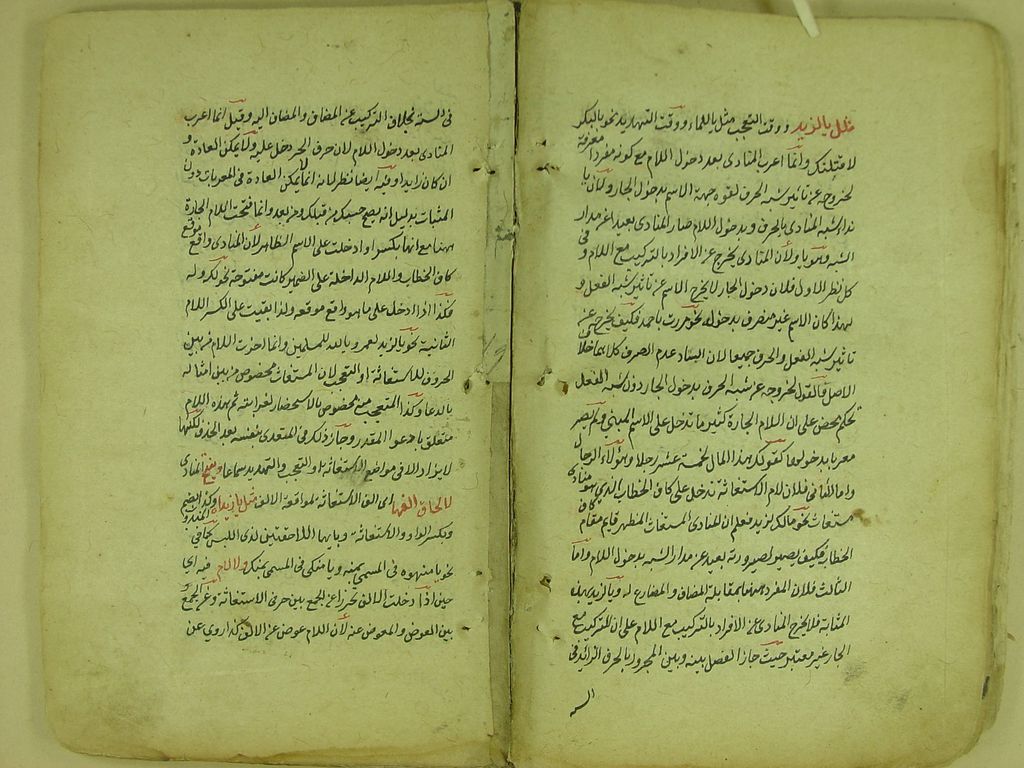 مثل يا لزيد ووقت التعجب مثل يا للماء ووقت التهديد نحو يا لبكر
لاقتلنك وانما اعرب المنادى بعد دخول اللام مع كونه مفردا معرفة
لخروجه عن تاثير شبه الحرف لقوة جهة الاسم بدخول الجار ولان يا
نداء شبه المنادى بالحرف وبدخول اللام صار المنادى بعيدا عن مدار
الشبه ولان المنادى يخرج عن الافراد بالتركيب مع اللام وفى
كل نظر الاول فلان دخول الجار لا يخرج الاسم عن تاثير شبه الفعل و
لهذا كان الاسم غير منصرف بدخوله نحو مررت باحمد فكيف يخرج عن
تاثير شبه الفعل والحرف جميعا لان البناء وعدم الصرف كلاهما خلاف
الاصل فالقول لخروجه عن شبه الحرف بدخول الجار دون شبه الفعل
تحكم محض على ان اللام الجارة كثيرا ما تدخل على الاسم المبنى ولم يصر
معربا بدخولها كقولك هذا المال لخمسة عشر رجلا ولهؤلاء الرجال
واما الثانى فلان لام الاستغاثة تدخل على كاف الخطاب الذى هو منادى
مستغاث نحو يا لك لزيد فعلم ان المنادى المستغاث المظهر قايم مقام كاف
الخطاب فكيف يصير لصيرورته بعيد عن مدار الشبه بدخول اللام واما
الثالث فلان المفرد ههنا بمقابلة المضاف والمضارع له ويا لزيد بهذه
المثابة فلا يخرج المنادى عن الافراد بالتركيب مع اللام على ان التركيب مع
الجار غير معتبر حيث جاز الفصل بينه وبين المجرور بالحرف الزائد فى
السـ
فى السـ بخلاف التركيب عن المضاف والمضاف اليه وقيل انما اعرب
المنادى بعد دخول اللام لان حرف الجر دخل عليه ولا يمكن العادة و
ان كان زايدا وفيه ايضا نظر لانه انما يمكن العادة فى المعربات دون
المثبات بدليل انه يصح حسبك ومن قبلك ومن بعد وانما فتحت اللام الجارة
ههنا مع انها بكسر اذا دخلت على الاسم الظاهر لان المنادى واقع موقع
كاف الخطاب واللام الداخلة على الضمير كانت مفتوحة نحو لك وله
فكذا اذا دخل على ما هو واقع موقعه ولذا بقيت على الكسر اللام
الثانية نحو يا لزيد لعمرو يا لله للمسلمين وانما اختزت اللام من بين
الحروف للاستغاثة او التعجب لان المستغاث مخصوص من بين امثاله
بالدعاء وكذا المتعجب منه مخصوص بالاستحضار لغرابته ثم هذه اللام
متعلق بادعو المقدر وجاز ذلك فى المتعدى بنفسه بعد الحذف لكنها
لا يزاد الا فى مواضع الاستغاثة والتعجب والتهديد سماعا ويفتح المنادى
لالحاق الفها اى الف الاستغاثة لموافقة الالف مثل يا زيداه
وتكسر الواو والاستغاثة ويايها اللاحقتين لذى اللبس
نحو يا منهوه فى المسمى بمنه ويا منكى فى المسمى بمنك ولا لام فيه اى
حين اذا دخلت الالف تحرزا عن الجمع بين حرفى الاستغاثة وعن الجمع
بين العوض والمعوض عنه لان اللام عوض عن الالف كذا روي عن